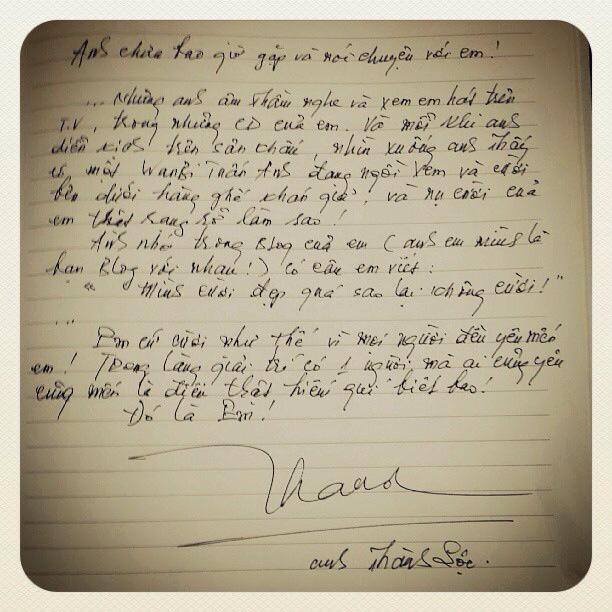 Anh chưa bao giờ gặp và nói chuyện với em!
... Nhưng anh âm thầm nghe và xem em hát trên
T.V, trong những CD của em. Và mỗi khi anh
diễn kịch trên sân khấu, nhìn xuống anh thấy
có một Wanbi Tuấn Anh đang ngồi xem và cười
bên dưới hàng ghế khán giả, và nụ cười của
em thật rạng rỡ làm sao!
Anh nhớ trong Blog của em (anh em mình là
bạn Blog với nhau!) có câu em viết:
" Mình cười đẹp quá sao lại không cười!"
...
Em cứ cười như thế vì mọi người đều yêu mến
em! Trong làng giải trí có 1 người mà ai cũng yêu
cũng mến là điều thật hiếm quí biết bao!
Đó là Em!
anh Thành Lộc.